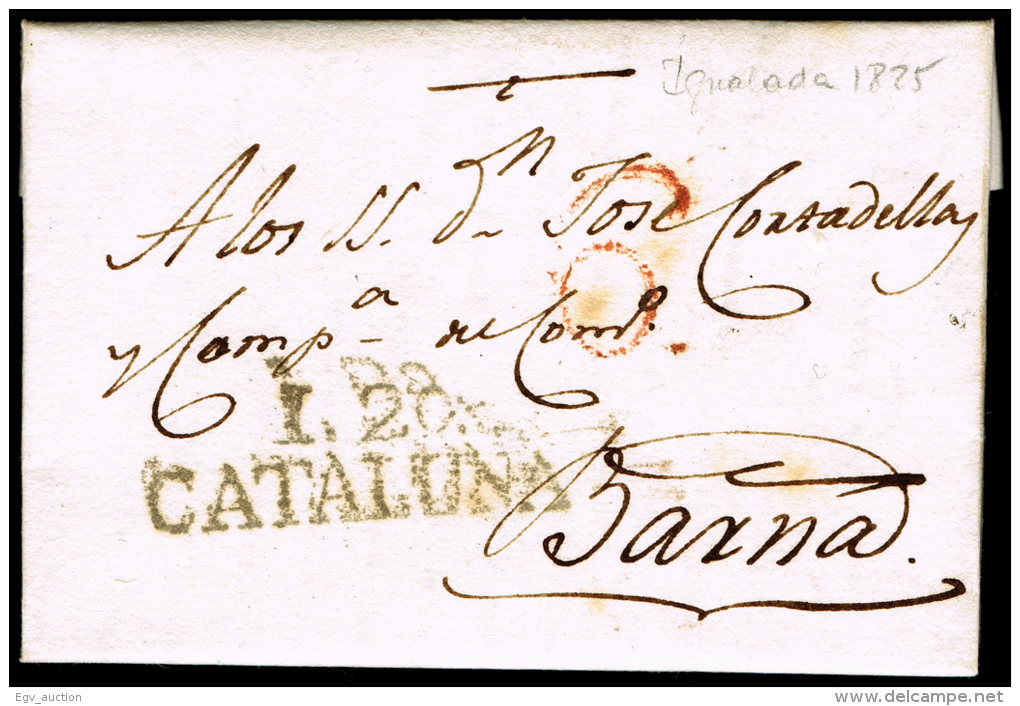 Igualada 1825
A los SS. dn Jose Cortadellas
y Compa. del Como.
I. 20.
CATALUÑA
Barna.
Egv_auction
delcampe.net